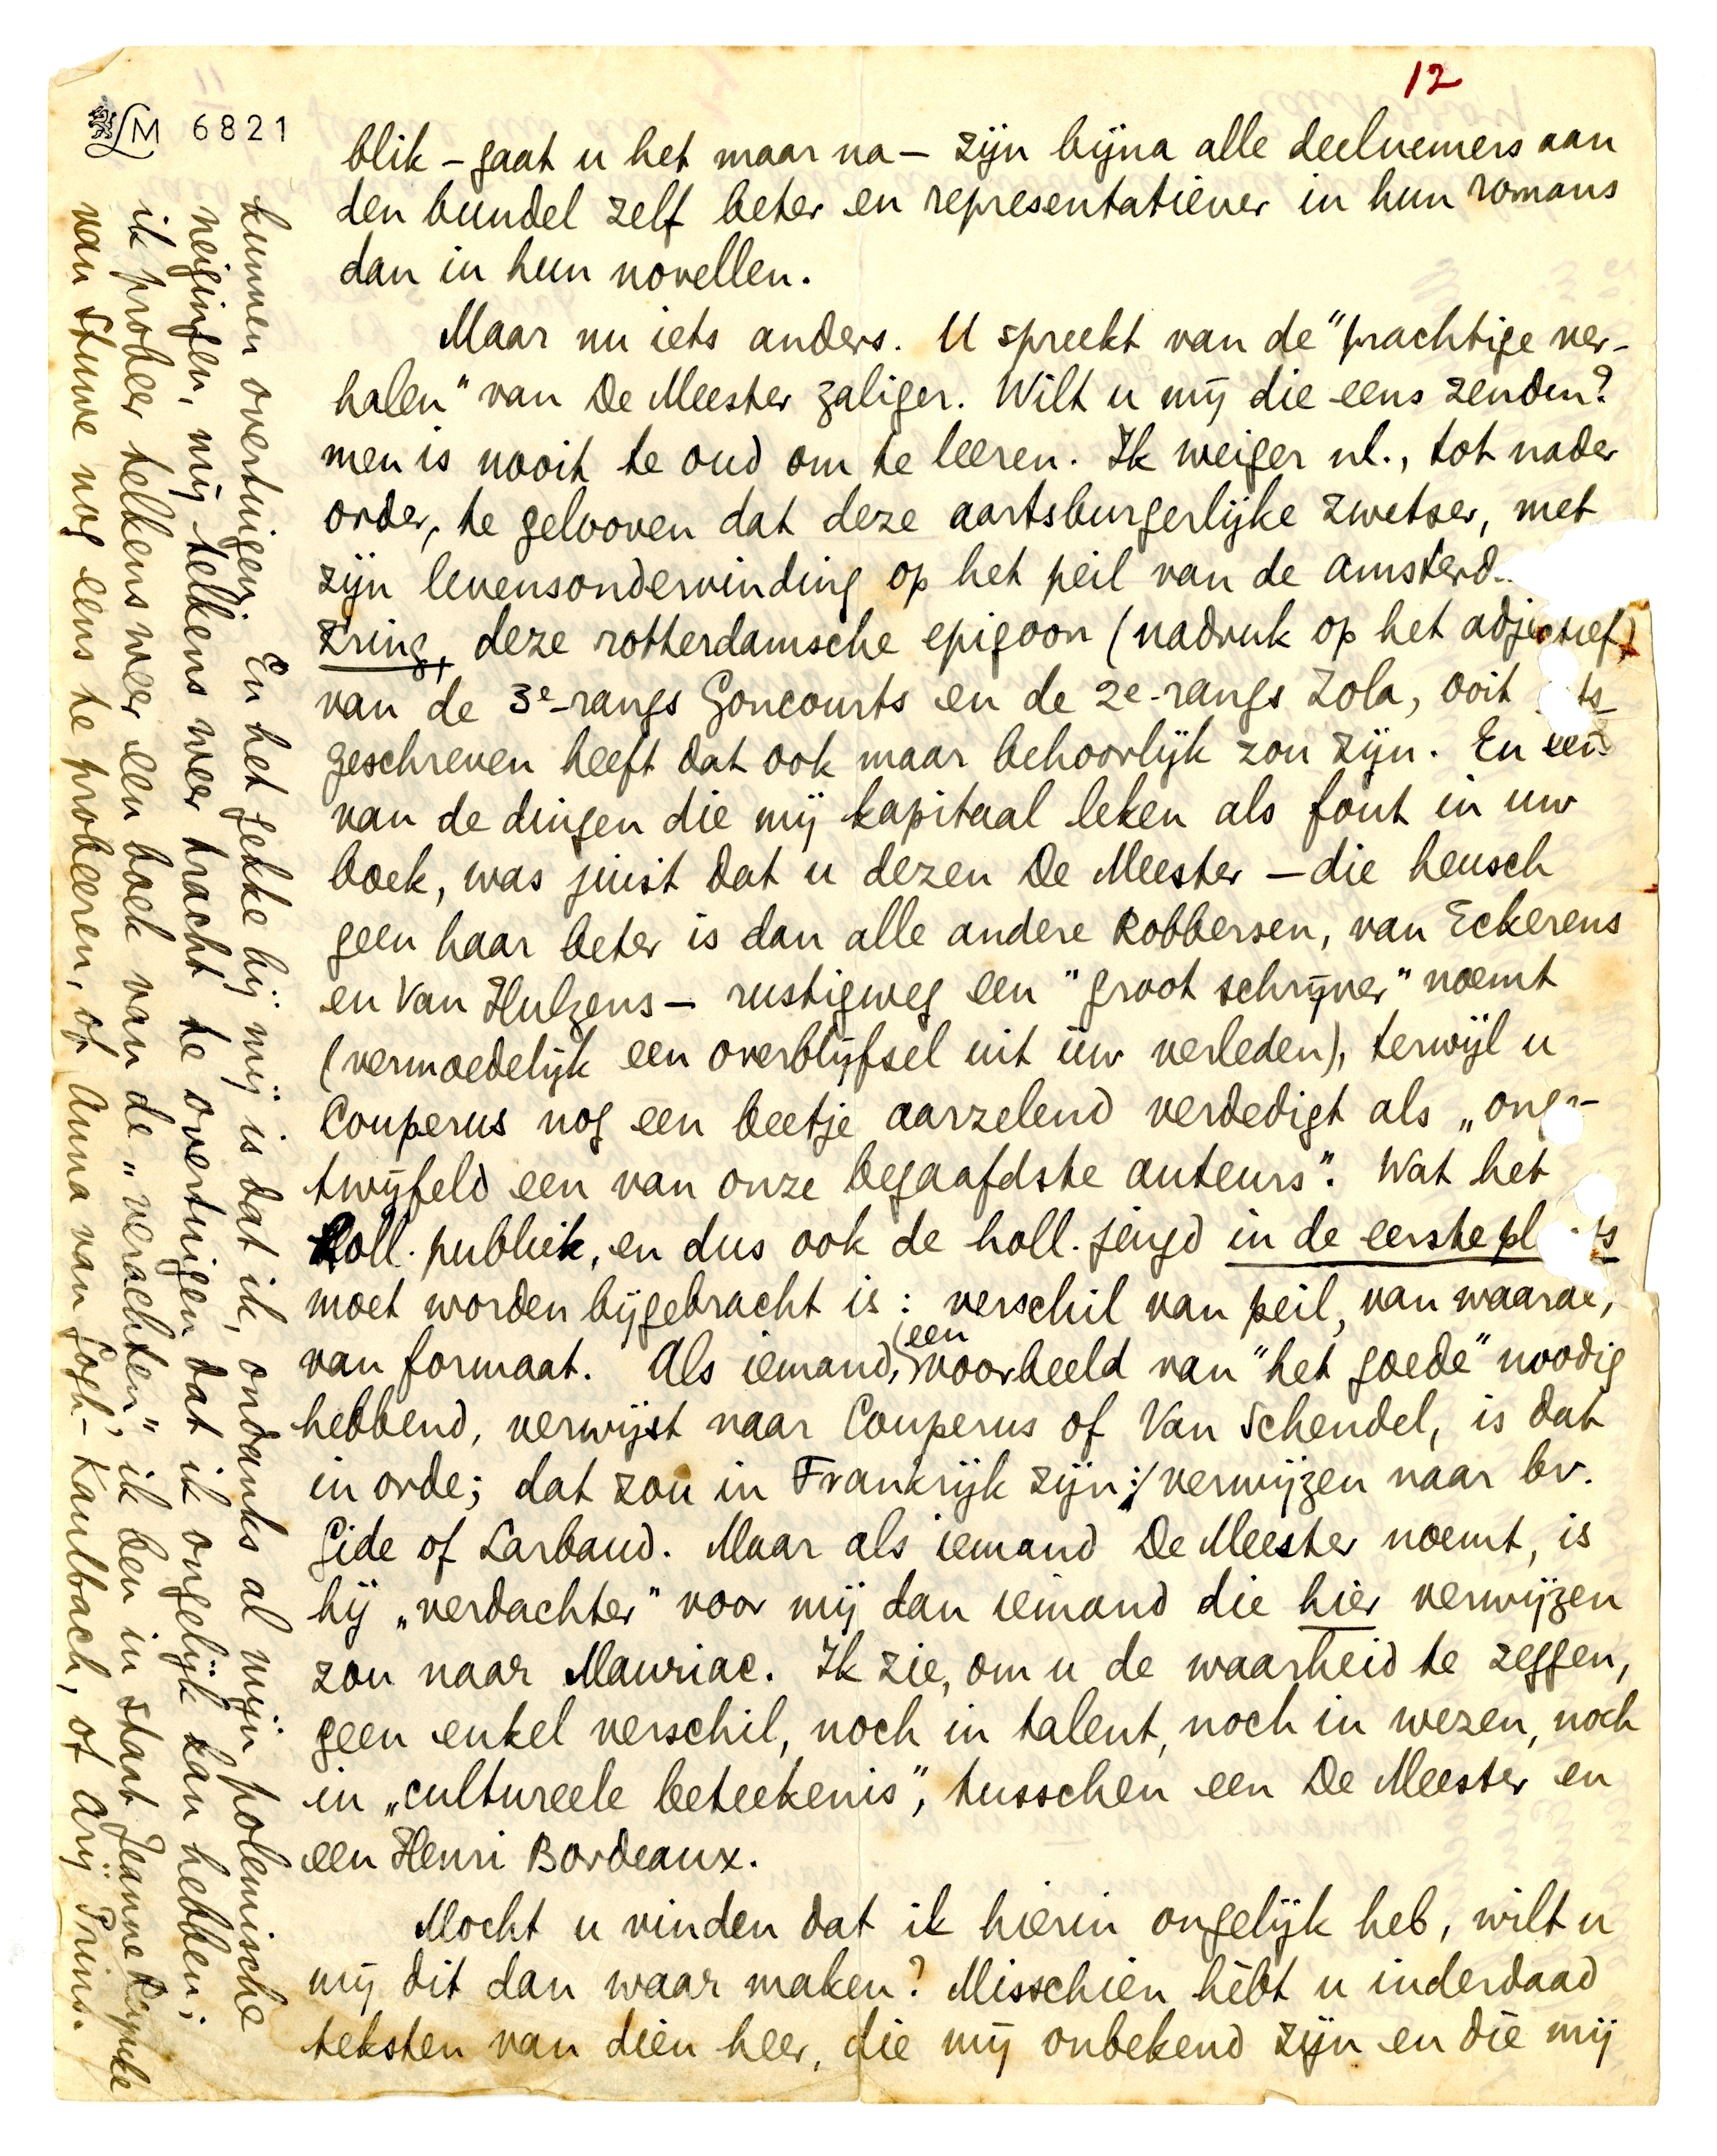 12
LM 6821
blik – gaat u het maar na – zijn bijna alle deelnemers aan
den bundel zelf beter en representatiever in hun romans
dan in hun novellen.
Maar nu iets anders. U spreekt van de "prachtige ver-
halen" van De Meester zaliger. Wilt u mij die eens zenden?
men is nooit te oud om te leeren. Ik weiger nl., tot nader
order, te gelooven dat deze aartsburgerlijke zwetser, met
zijn levensondervinding op het peil van de amsterd.
kring, deze rotterdamsche epigoon (nadruk op het adjectief)
van de 3e-rangs Goncourts en de 2e-rangs Zola, ooit
geschreven heeft dat ook maar behoorlijk zou zijn. En een
van de dingen die mij kapitaal leken als fout in uw
boek, was juist dat u dezen De Meester – die heusch
geen haar beter is dan alle andere Robbersen, van Eckerens
en Van Hulzens – rustigweg een "groot schrijver" noemt
(vermoedelijk een overblijfsel uit úw verleden), terwijl u
Couperus nog een beetje aarzelend verdedigt als „onge-
twijfeld een van onze begaafdste auteurs". Wat het
Holl. publiek, en dus ook de holl. jeugd in de eerste pl ts
moet worden bijgebracht is: verschil van peil, van waarde,
van formaat. Als iemand, een voorbeeld van "het goede" noodig
hebbend, verwijst naar Couperus of Van Schendel, is dat
in orde; dat zou in Frankrijk zijn: verwijzen naar bv.
Gide of Larbaud. Maar als iemand De Meester noemt, is
hij „verdachter" voor mij dan iemand die hier verwijzen
zou naar Mauriac. Ik zie, om u de waarheid te zeggen,
geen enkel verschil, noch in talent, noch in wezen, noch
in „cultureele beteekenis", tusschen een De Meester en
een Henri Bordeaux.
Mocht u vinden dat ik hierin ongelijk heb, wilt u
mij dit dan waar maken? Misschien hèbt u inderdaad
teksten van dien heer, die mij onbekend zijn en die mij
kunnen overtuigen. En het gekke bij mij is dat ik, ondanks al mijn polemische
neigingen, mij telkens weer tracht te overtuigen dat ik ongelijk kan hebben;
ik probeer telkens weer een boek van de „verachten", ik ben in staat Jeanne Reyneke
van Stuwe nog eens te probeeren, of Anna van Gogh-Kaulbach, of Arij Prins.